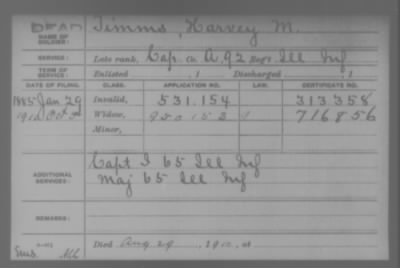 DEAD
NAME OF SOLDIER: Timms, Harvey M.
SERVICE: Late rank, Cap. Co. A, 92 Reg't Ill Inf
TERM OF SERVICE: Enlisted , 1 Discharged , 1
DATE OF FILING. CLASS. APPLICATION NO. LAW. CERTIFICATE NO.
1885 Jan 29 Invalid, 531.154 313358
1910 Oct Widow, 950152 716856
Minor,
ADDITIONAL SERVICES: Capt I 65 Ill Inf
Maj 65 Ill Inf
REMARKS:
Died Aug 29, 1910, at